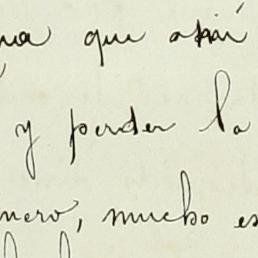 que así
y perder la
nero, mucho es